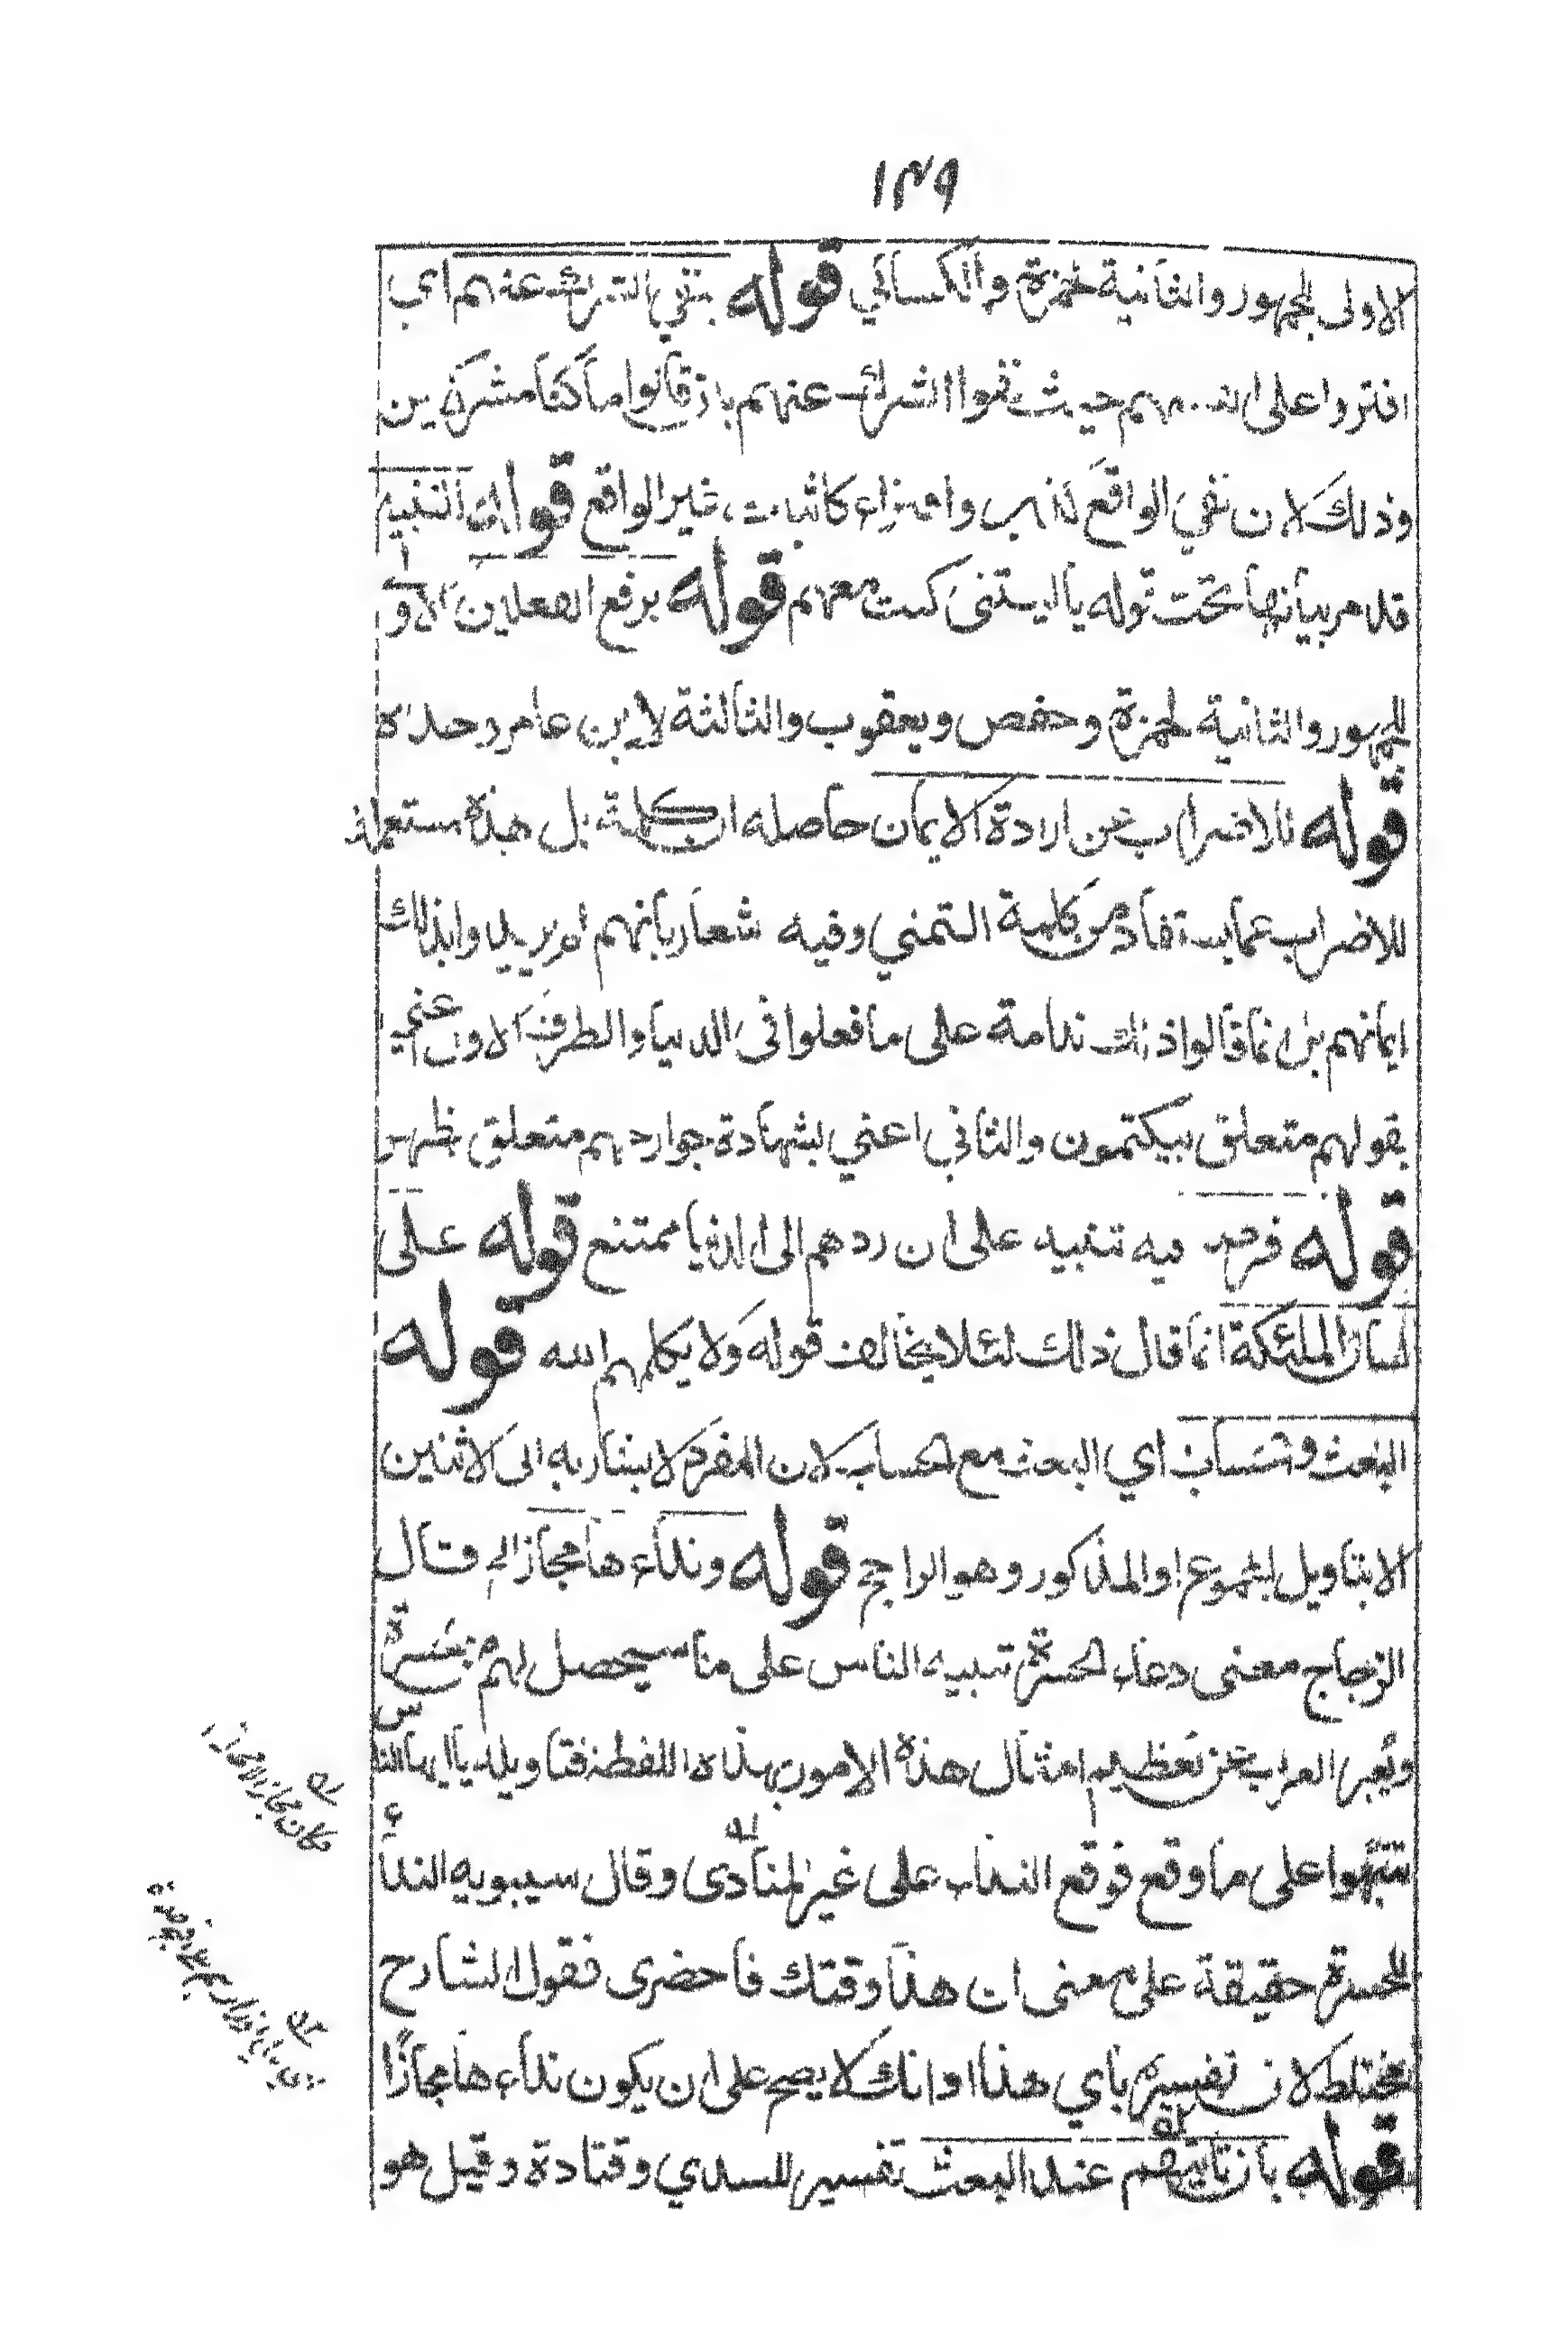 ١٣٩
الاولى للجمهور والثانية لحمزة والكسائي قوله بنفي الشرك عنهم اي
افتروا على الله حيث نفوا الشرك عنهم بان قالوا ما كنا مشركين
وذلك لان نفي الواقع كذب وافتراء كاثبات غير الواقع قوله التنبيه
قد مر بيانها تحت قوله يا ليتنى كنت معهم قوله برفع الفعلين الاولى
للجمهور والثانية لحمزة وحفص ويعقوب والثالثة لابن عامر وحده
قوله للاضراب عن ارادة الايمان حاصله ان كلمة بل هذه مستعملة
للاضراب عما يستفاد من كلمة التمني وفيه شعار بانهم لم يريدوا بذلك
ايمانهم بل انما قالوا ذلك ندامة على ما فعلوا فى الدنيا والطرف الاول اعني
بقولهم متعلق بيكتمون والثاني اعني بشهادة جوارحهم متعلق بظهر
قوله فرضا فيه تنبيه على ان ردهم الى الدنيا ممتنع قوله على
لسان الملئكة انما قال ذلك لئلا يخالف قوله ولا يكلمهم الله قوله
البعث والحساب اي البعث مع الحساب لان المفرد لا يشار به الى الاثنين
الا بتاويل المجموع او المذكور وهو الراجح قوله ونداءها مجاز الخ قال
الزجاج معنى دعاء الحسرة تنبيه الناس على ما سيحصل لهم من الحسرة
ويعبر العرب عن تعظيم امثال هذه الامور بهذه اللفظة فتاويله يا ايها الناس
تنبهوا على ما وقع فوقع النداء على غير المنادى وقال سيبويه النداء
للحسرة حقيقة على معنى ان هذا وقتك فاحضرى فقول الشارح
مختلط لان تفسيره باي هذا اوانك لا يصح على ان يكون نداءها مجازا
قوله بان تاتيهم عند البعث تفسير للسدي وقتادة وقيل هو